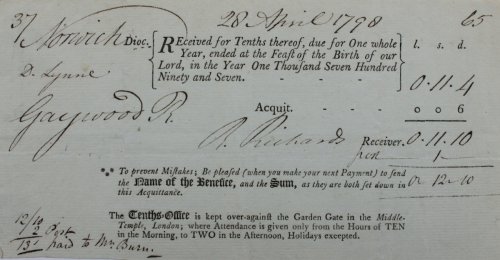 37 28 April 1798 65
Norwich Dioc. Received for Tenths thereof, due for One whole l. s. d.
Year, ended at the Feast of the Birth of our
D. Lynne Lord, in the Year One Thousand Seven Hundred
Ninety and Seven. 0.11.4
Gaywood R. Acquit. 0 0 6
R. Richards Receiver. 0.11.10
1
0 12-10
*⁎* To prevent Mistakes; Be pleased (when you make your next Payment) to send
the Name of the Benefice, and the Sum, as they are both set down in
this Acquittance.
The Tenths-Office is kept over-against the Garden Gate in the Middle-
Temple, London; where Attendance is given only from the Hours of TEN
in the Morning, to TWO in the Afternoon, Holidays excepted.
12/10
3 Post
13/1 paid to Mr Burn.